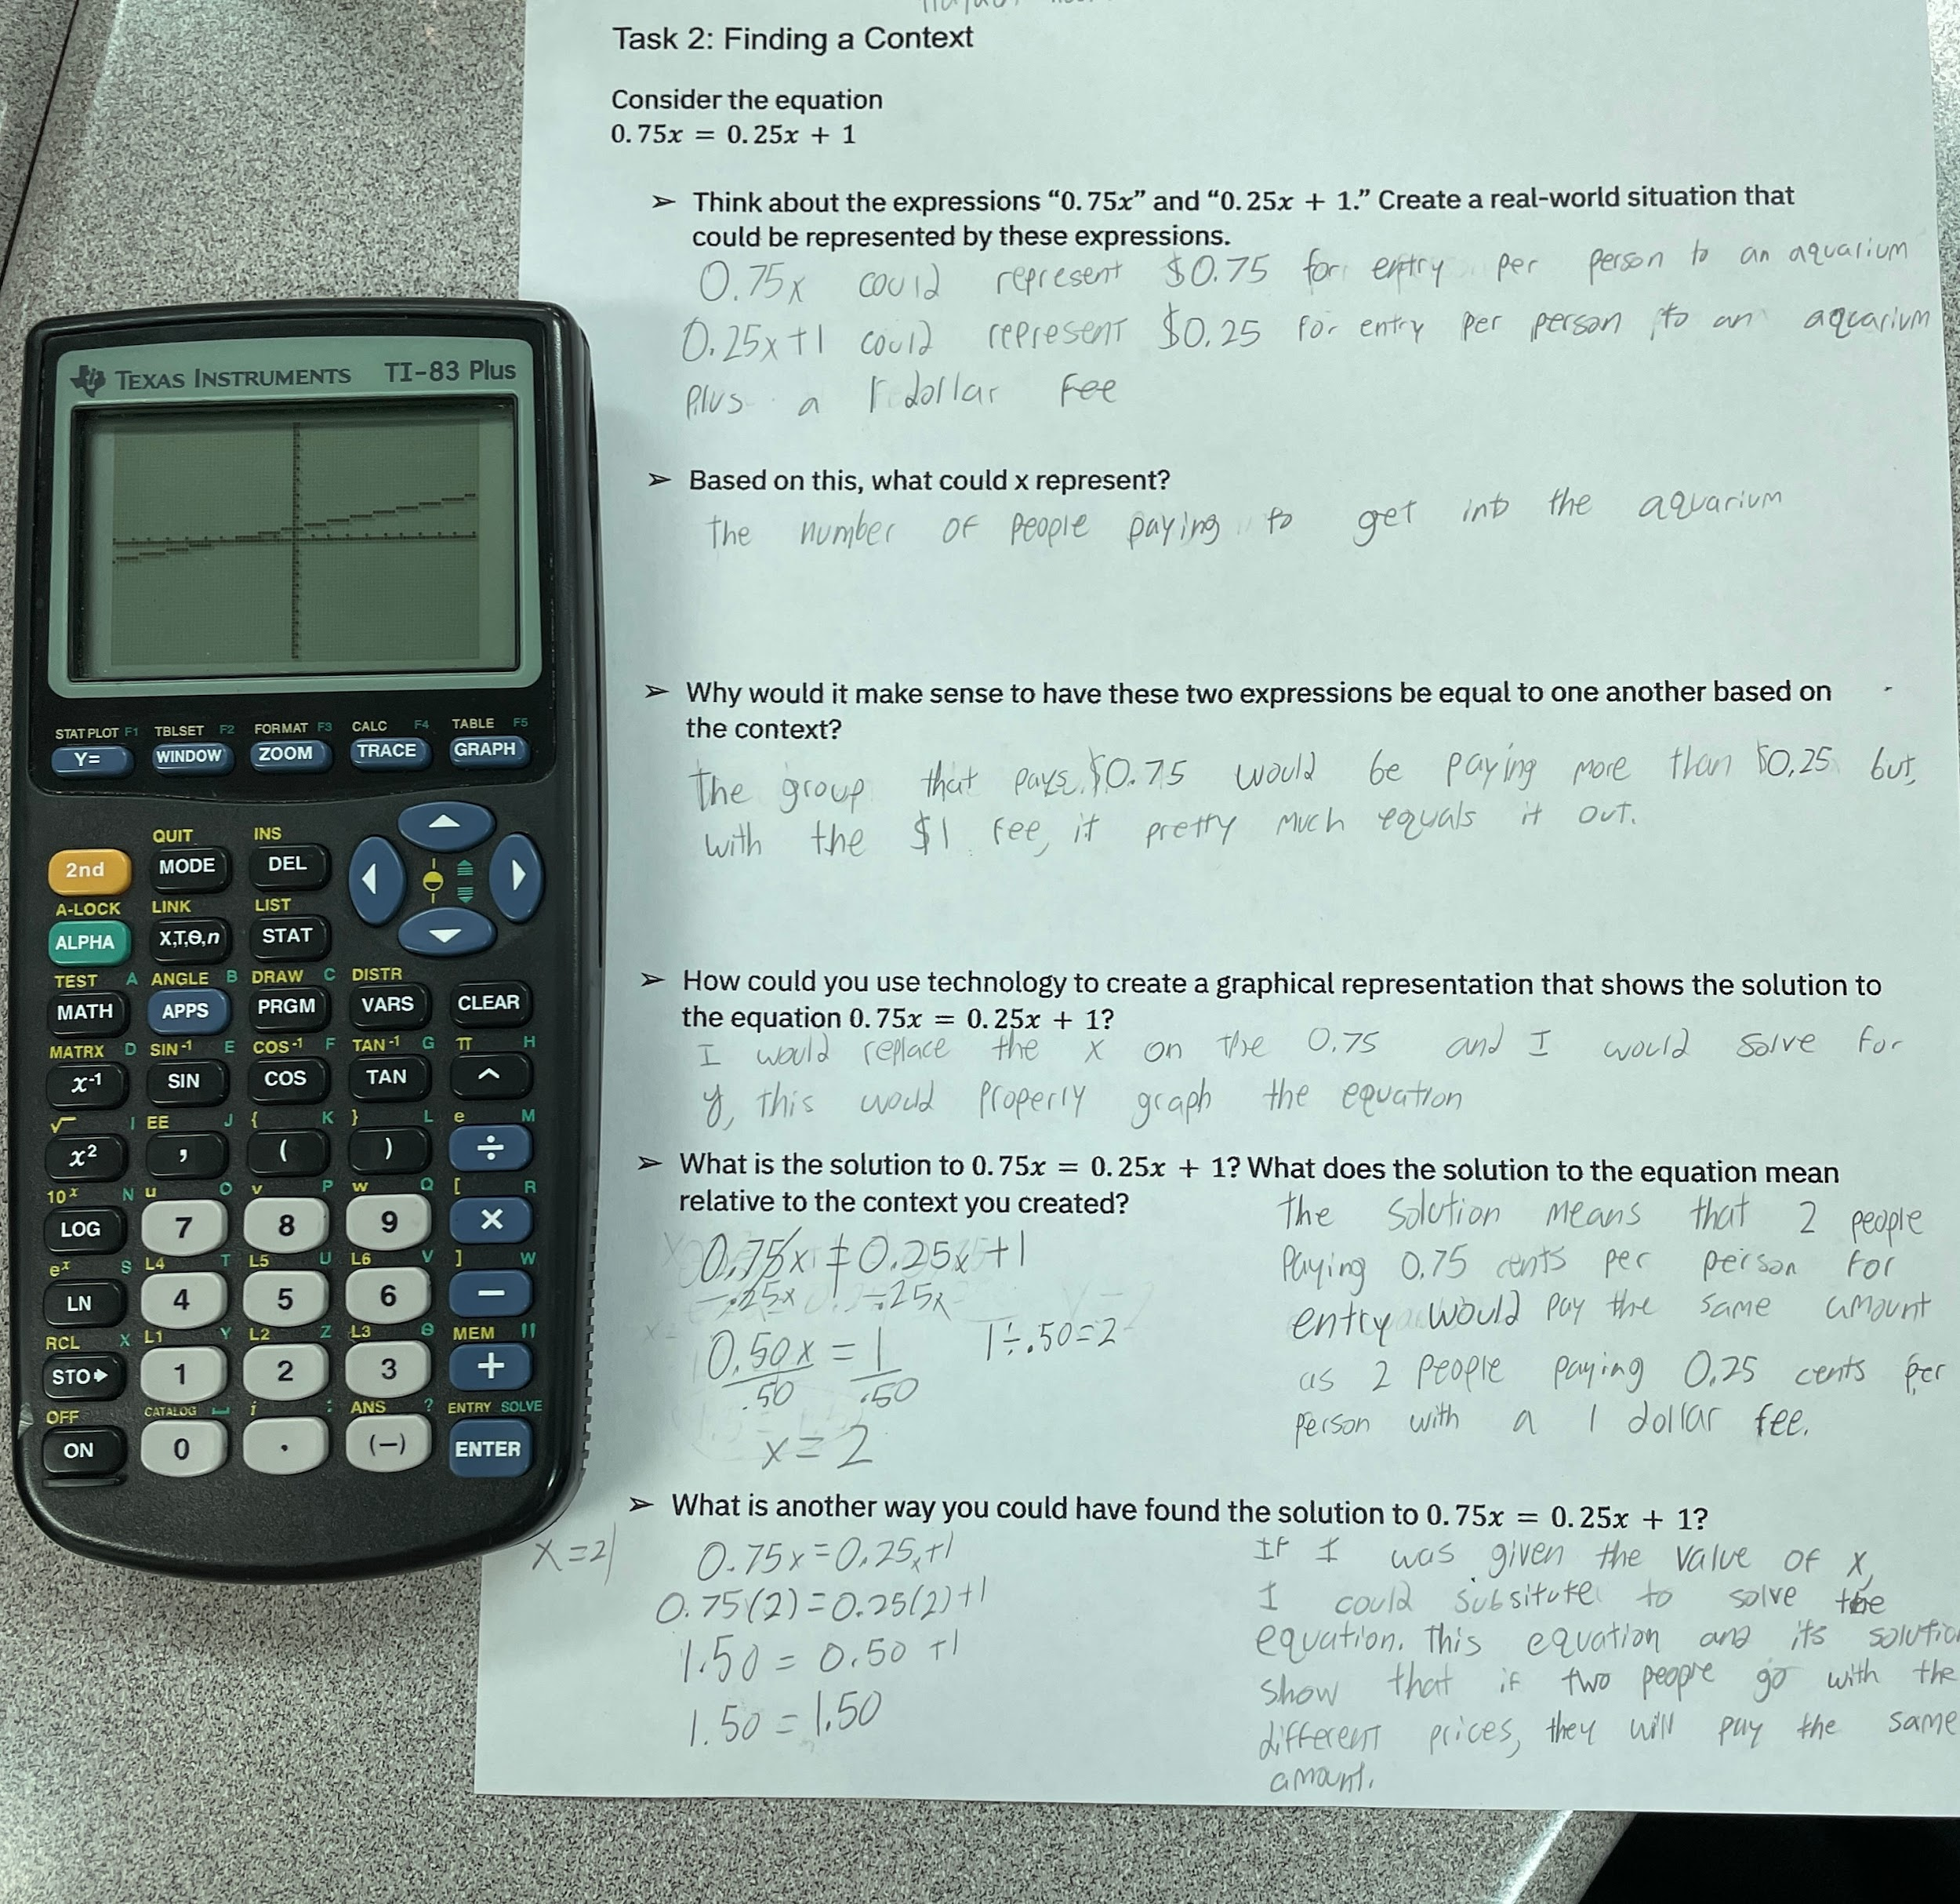 Task 2: Finding a Context
Consider the equation
0.75x = 0.25x + 1
➢ Think about the expressions “0.75x” and “0.25x + 1.” Create a real-world situation that
could be represented by these expressions.
0.75x could represent $0.75 for entry per person to an aquarium
0.25x+1 could represent $0.25 for entry per person to an aquarium
Plus a 1 dollar fee
➢ Based on this, what could x represent?
The number of people paying to get into the aquarium
➢ Why would it make sense to have these two expressions be equal to one another based on
the context?
The group that pays $0.75 would be paying more than $0.25 but,
with the $1 fee, it pretty much equals it out.
➢ How could you use technology to create a graphical representation that shows the solution to
the equation 0.75x = 0.25x + 1?
I would replace the x on the 0.75 and I would solve for
y, this would properly graph the equation
➢ What is the solution to 0.75x = 0.25x + 1? What does the solution to the equation mean
relative to the context you created?
0.75x = 0.25x + 1
-.25x -.25x
0.50x = 1
.50 .50
1÷.50=2
x = 2
The solution means that 2 people
paying 0.75 cents per person for
entry would pay the same amount
as 2 people paying 0.25 cents per
person with a 1 dollar fee.
➢ What is another way you could have found the solution to 0.75x = 0.25x + 1?
x=2
0.75x=0.25x+1
0.75(2)=0.25(2)+1
1.50 = 0.50 +1
1.50 = 1.50
If I was given the value of x,
I could subsitute to solve the
equation. This equation and its solution
show that if two people go with the
different prices, they will pay the same
amount.
TEXAS INSTRUMENTS TI-83 Plus
STAT PLOT F1 TBLSET F2 FORMAT F3 CALC F4 TABLE F5
Y= WINDOW ZOOM TRACE GRAPH
QUIT INS
2nd MODE DEL
A-LOCK LINK LIST
ALPHA X,T,Θ,n STAT
TEST A ANGLE B DRAW C DISTR
MATH APPS PRGM VARS CLEAR
MATRX D SIN-1 E COS-1 F TAN-1 G π H
x-1 SIN COS TAN ^
√ I EE J { K } L e M
x² , ( ) ÷
10x N u O v P w Q [ R
LOG 7 8 9 ×
ex S L4 T L5 U L6 V ] W
LN 4 5 6 −
RCL X L1 Y L2 Z L3 θ MEM "
STO▸ 1 2 3 +
OFF CATALOG ⎵ i : ANS ? ENTRY SOLVE
ON 0 . (−) ENTER